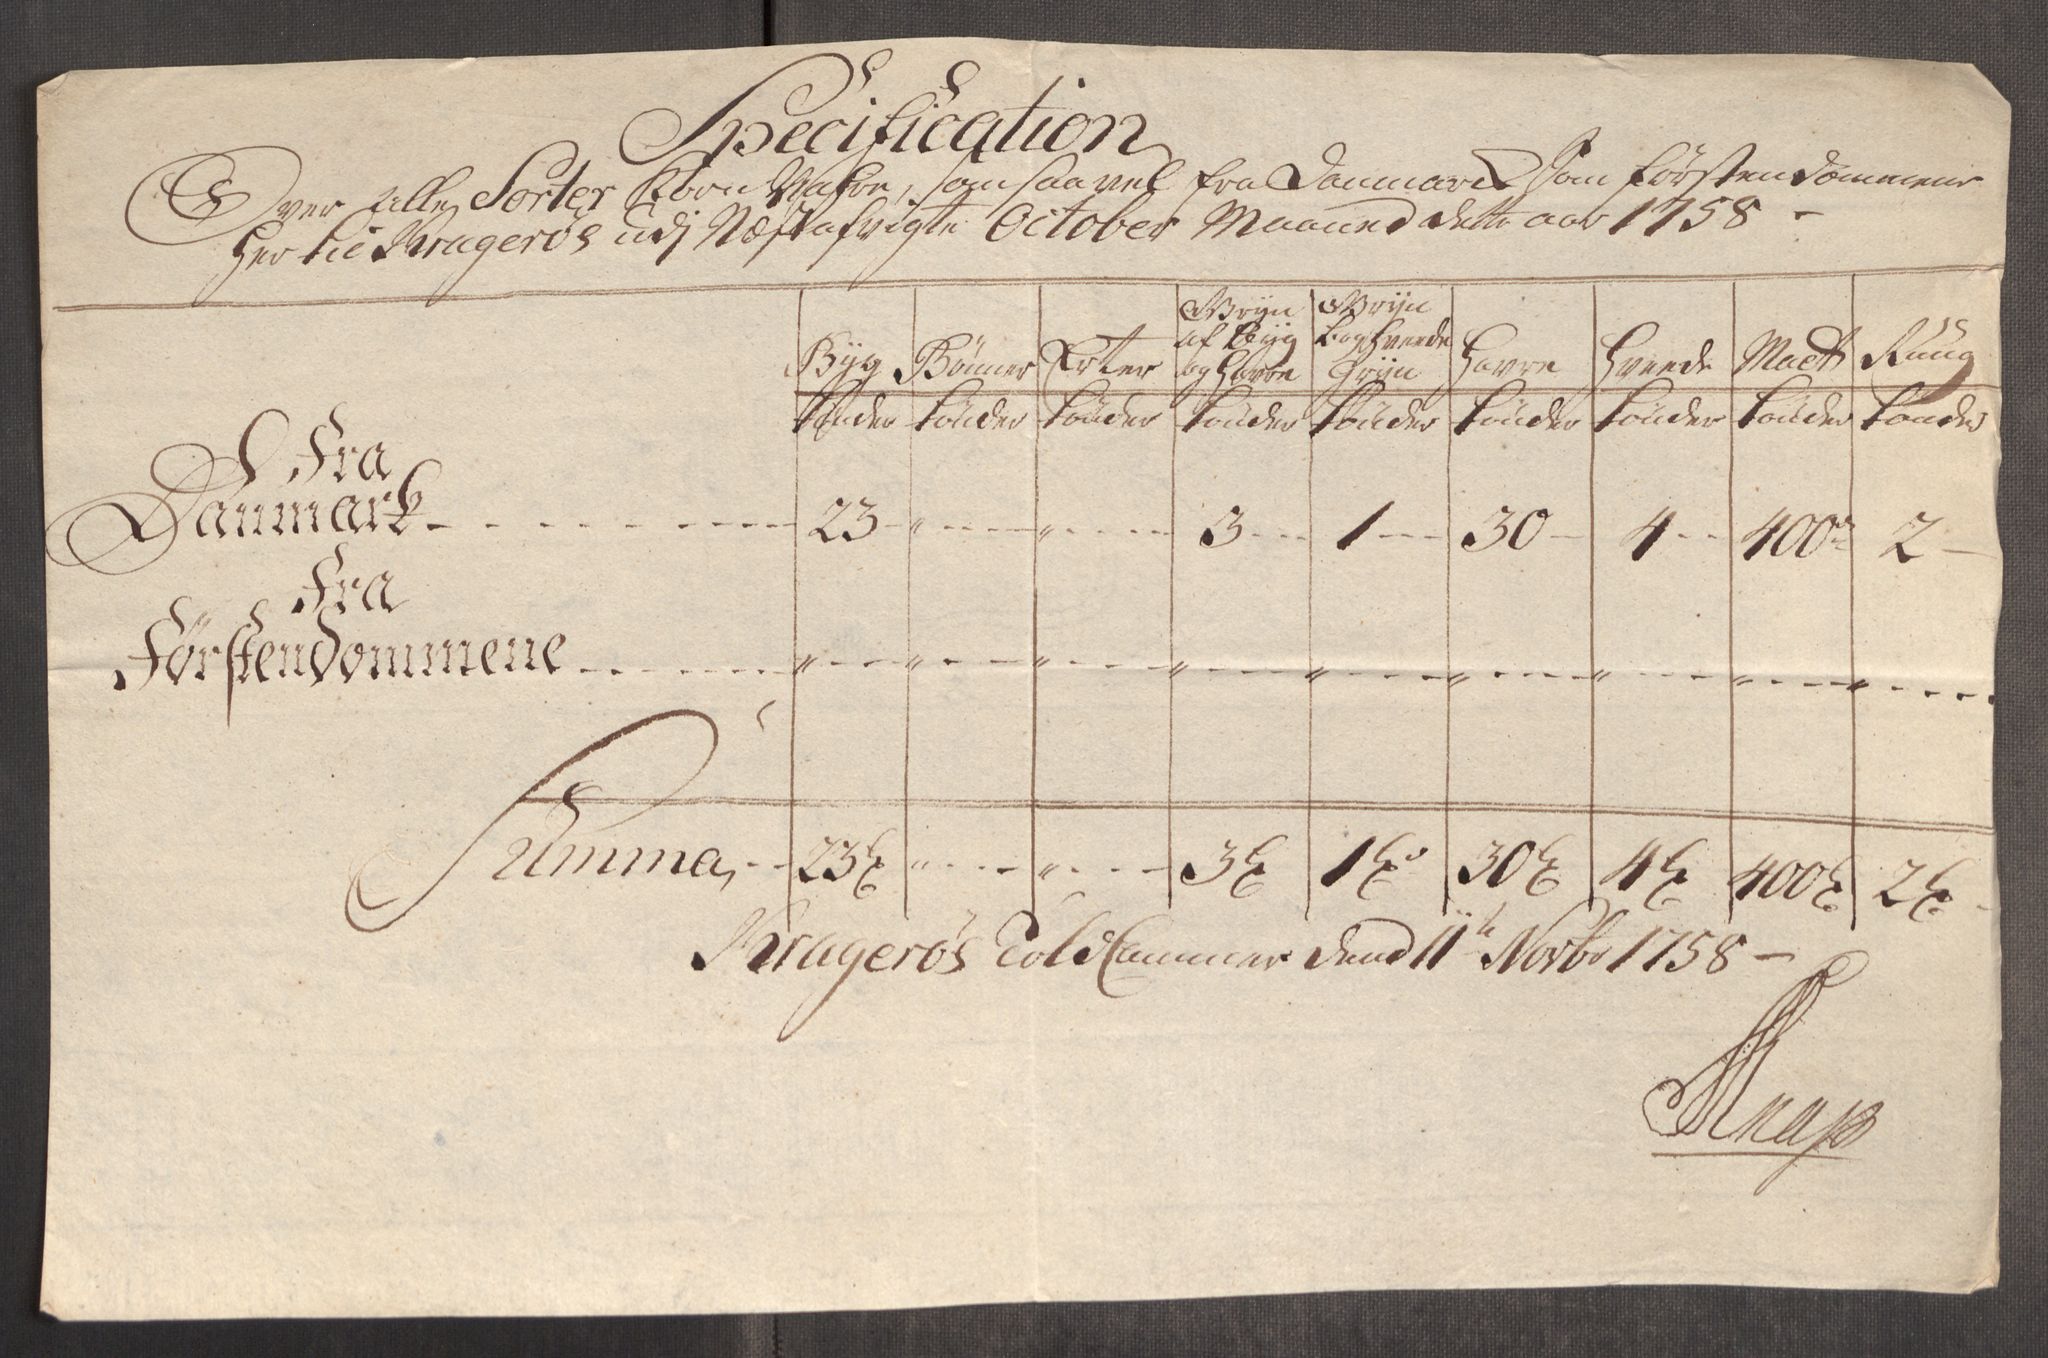 Specification
Over alle Sorter Korn Vahre, som saavel fra Danmarck Som Förstendommene
her til Krageröe udj Næstafvigte October Maaned dette aar 1758 –
Byg Bönner Erter Gryn af Byg og Havre Gryn Boghvede Gryn Havre Hvede Malt Ruug
tönder tönder tönder tönder tönder tönder tönder tönder tönder
Fra
Danmark 23 – „ „ 3 1 30 4 400 2
Fra
Förstendommene „ „ „ „ „ „ „ „ „
Summa, 23 „ „ 3 1 30 4 400 2
Krageröes Told Cammer dend 11te Novbr 1758 –
Knap